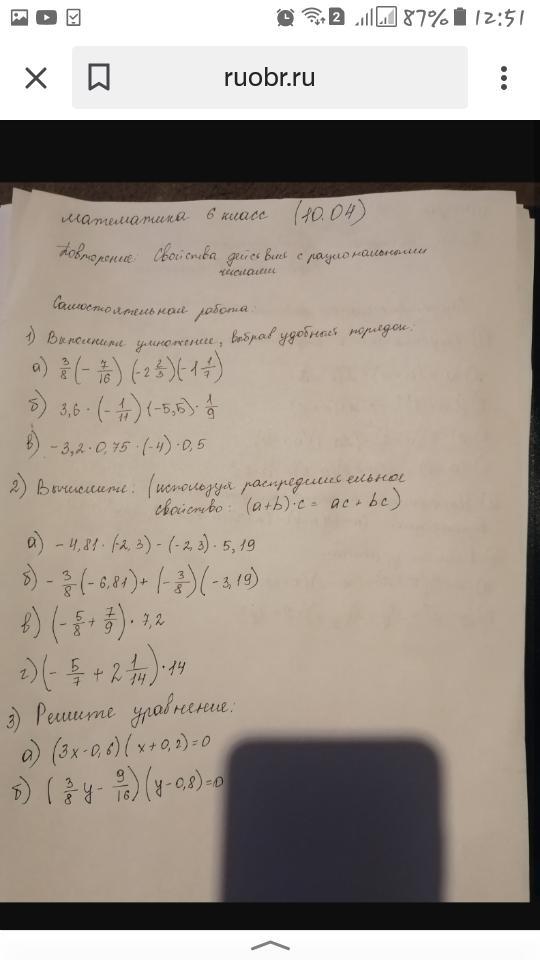 87% 12:51
ruobr.ru
Математика 6 класс (10.04)
Повторение: Свойства действия с рациональными
числами
Самостоятельная работа:
1) Выполните умножение, выбрав удобный порядок:
а) 3/8 (- 7/16) (-2 2/3) (-1 1/7)
б) 3,6 · (- 1/11) (-5,5) · 1/9
в) -3,2 · 0,75 · (-4) · 0,5
2) Вычислите: (используя распределительное
свойство: (a+b)·c = ac + bc)
а) -4,81 · (-2,3) - (-2,3) · 5,19
б) - 3/8 (-6,81) + (- 3/8) (-3,19)
в) (- 5/8 + 7/9) · 7,2
г) (- 5/7 + 2 1/14) · 14
3) Решите уравнение:
а) (3x-0,6)(x+0,2)=0
б) (3/8 y - 9/16) (y-0,8)=0